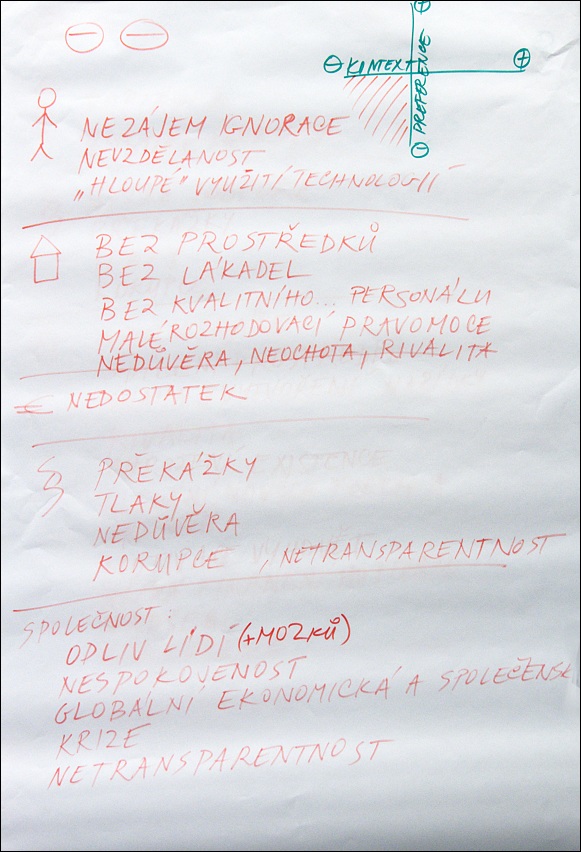 ⊖ ⊖
⊕
⊖ KONTEXT ⊕
PREFERENCE
⊖
NEZÁJEM IGNORACE
NEVZDĚLANOST
„HLOUPÉ" VYUŽITÍ TECHNOLOGIÍ
BEZ PROSTŘEDKŮ
BEZ LÁKADEL
BEZ KVALITNÍHO... PERSONÁLU
MALÉ ROZHODOVACÍ PRAVOMOCE
NEDŮVĚRA, NEOCHOTA, RIVALITA
€ NEDOSTATEK
§ PŘEKÁŽKY
TLAKY
NEDŮVĚRA
KORUPCE , NETRANSPARENTNOST
SPOLEČNOST:
ODLIV LIDÍ (+MOZKŮ)
NESPOKOJENOST
GLOBÁLNÍ EKONOMICKÁ A SPOLEČENSK
KRIZE
NETRANSPARENTNOST